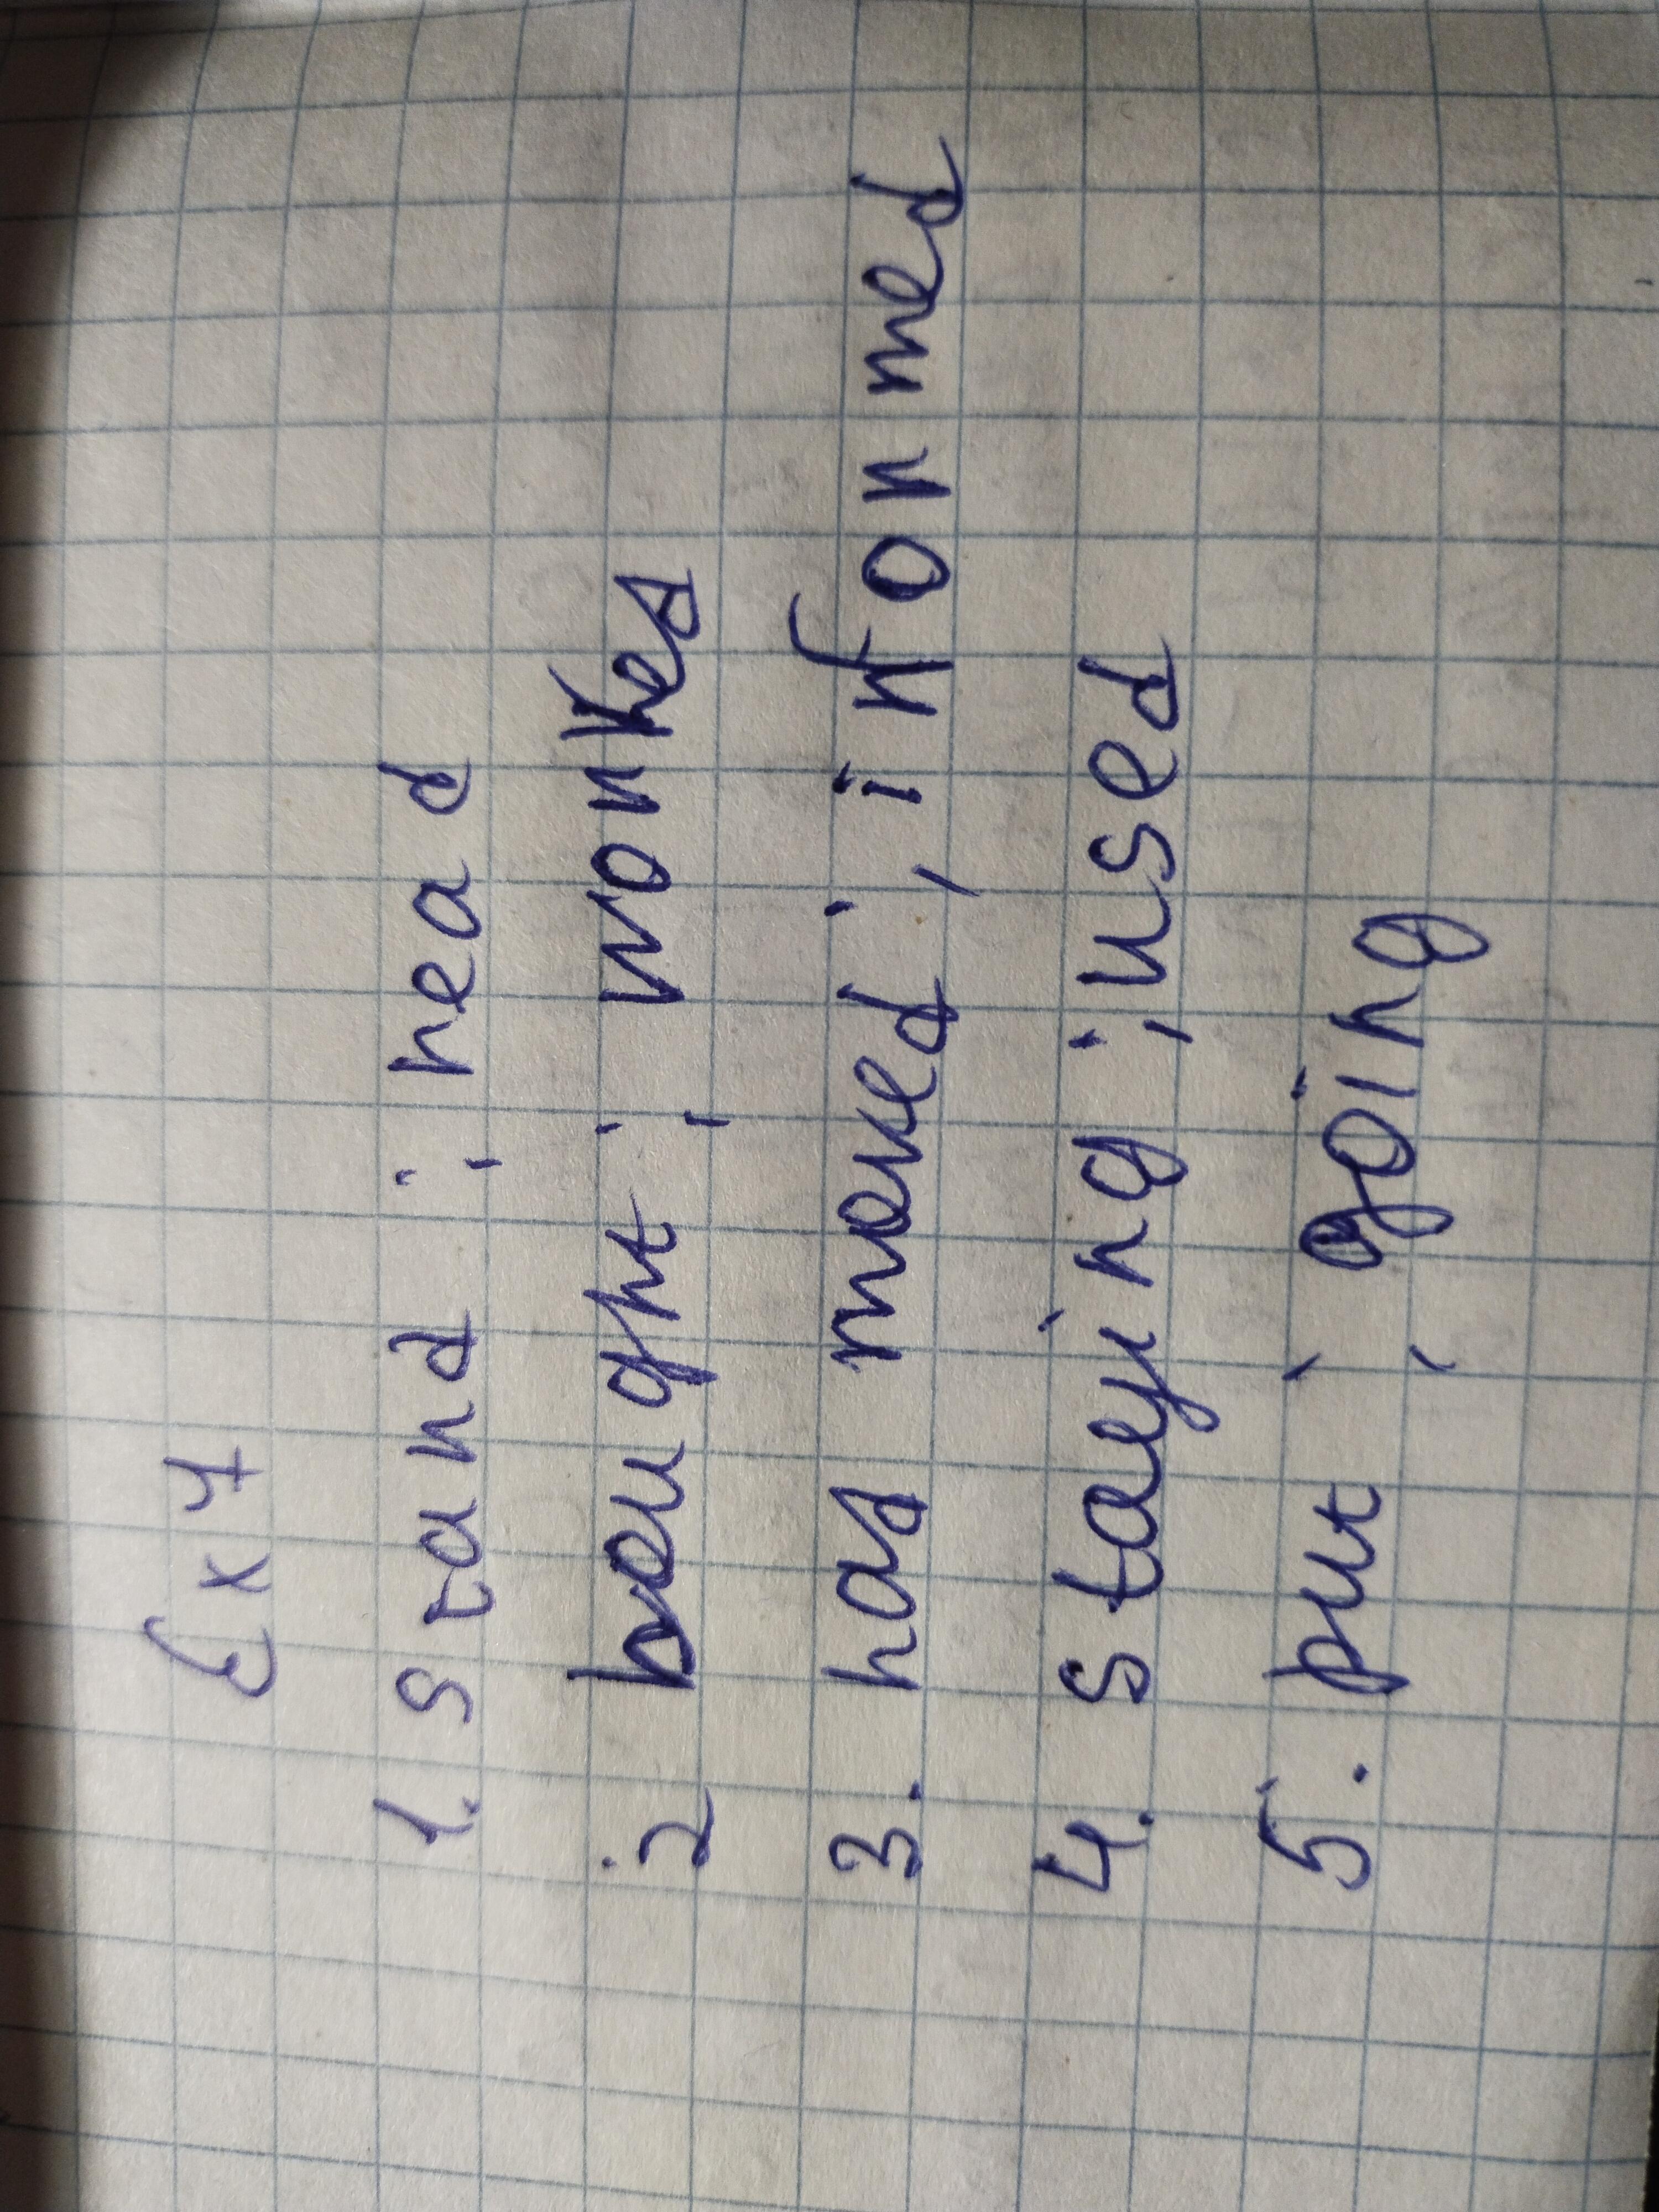 Ex 4
1. stand ; head
2 bought ; workes
3. has moved ; informed
4. staying ; used
5. put ; going